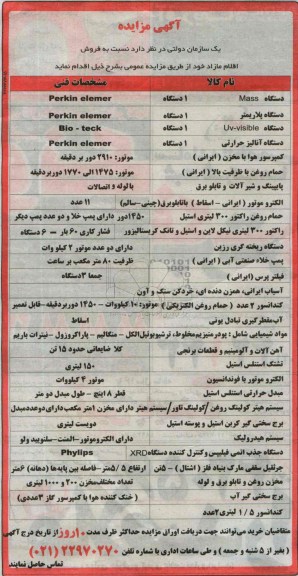 آگهی مزایده
یک سازمان دولتی در نظر دارد نسبت به فروش
اقلام مازاد خود از طریق مزایده عمومی بشرح ذیل اقدام نماید
نام کالا مشخصات فنی
دستگاه Mass ۱ دستگاه Perkin elemer
دستگاه پلاریمتر ۱ دستگاه Perkin elemer
دستگاه Uv-visible ۱ دستگاه Bio - teck
دستگاه آنالیز حرارتی ۱ دستگاه Perkin elemer
کمپرسور هوا با مخزن ( ایرانی ) موتور: ۲۹۱۰ دور بر دقیقه
حمام روغن با ظرفیت بالا ( ایرانی ) موتور: ۱۴۷۵ الی ۱۷۷۰ دوربردقیقه
پایپینگ و شیر آلات و تابلو برق با لوله و اتصالات
الکترو موتور ( ایرانی - اسقاط ) باتابلوبرق(چینی-سالم) ۱۱ عدد
حمام روغن راکتور ۳۰۰ لیتری استیل ۱۴۵۰دور دارای پمپ خلاء و دو عدد پمپ دیگر
راکتور ۳۰۰ لیتری نیکل لاین و استیل و تانک کریستالیزور فشار کاری ۶۰ بار - ۶ دستگاه
دستگاه ریخته گری رزین دارای دو عدد موتور ۲ کیلو وات
پمپ خلاء صنعتی آبی ( ایرانی ) ظرفیت ۸۰ متر مکعب بر ساعت
فیلتر پرس (ایرانی) جمعا ۳دستگاه
آسیاب ایرانی، همزن دنده ای، خردکن سنگ و آون
کندانسور ۲ عدد ( حمام روغن الکتریکی) موتور: ۱۰ کیلووات - ۱۴۵۰ دوربردقیقه-قابل تعمیر
آب مقطرگیری تبادل یونی اسقاط
مواد شیمیایی شامل : پودرمنیزیم مخلوط، ترشیوبوتیل الکل - متگالیم - پاراکروزول - نیترات باریم
آهن آلات و آلومینیم و قطعات برنجی کلا ضایعاتی حدود ۱۵ تن
تشتک استنلس استیل ۱۵۰ لیتری
الکترو موتور با فوندانسیون موتور ۴ کیلووات
مبدل حرارتی استنلس استیل قطر ۸ اینچ - طول مبدل دو متر
سیستم هیتر کولینگ روغن /کولینگ تاور/سیستم هیتر دارای مخزن ۱متر مکعب دارای دوعددمبدل
برج سختی گیر کربن استیل و پوسته استیل دویست لیتری
سیستم هیدرولیک دارای الکتروموتور-المنت-سلنویید ولو
دستگاه جذب اتمی فیلیپس و کنترل کننده دستگاه XRD Phylips
جرثقیل سقفی مارک بنیاد فلز ( اشتال ) - ۵تن ارتفاع ۵/۵متر-فاصله بین پایه‌ها (دهانه) ۶متر
مخزن روغن و تابلو برق و لوله تعداد مختلف مخزن ۲۰۰ و ۱۰۰۰ لیتری
برج سختی گیر آب ( خنک کننده هوا با کمپرسور گاز ۳عددی)
کندانسور ۱/۵ لیتری ۲عدد
متقاضیان خرید می‌توانند جهت دریافت اوراق مزایده حداکثر ظرف مدت ۱۰روز از تاریخ درج آگهی
( بغیر از ۵ شنبه و جمعه ) و طی ساعات اداری با شماره تلفن ۲۲۹۷۰۲۷۰ (۰۲۱)
تماس حاصل نمایند